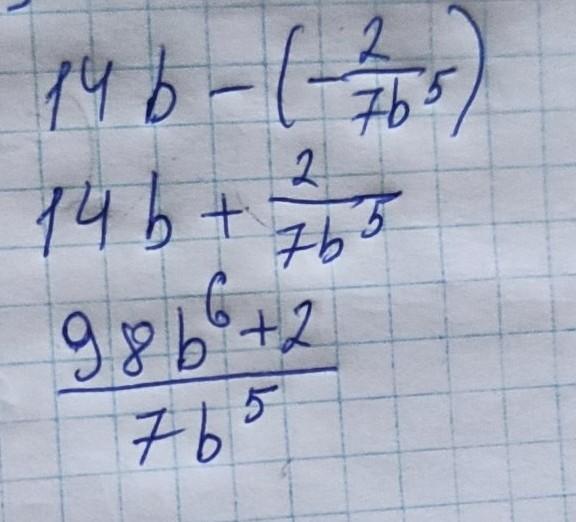 14b - (-\frac{2}{7b^5})
14b + \frac{2}{7b^5}
\frac{98b^6+2}{7b^5}